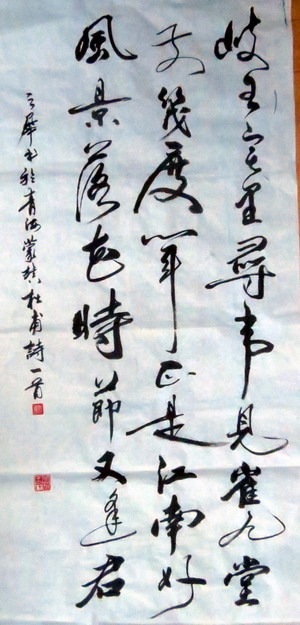 岐王宅里尋常見崔九堂
前幾度聞正是江南好
風景落花時節又逢君
书於青海 杜甫詩一首